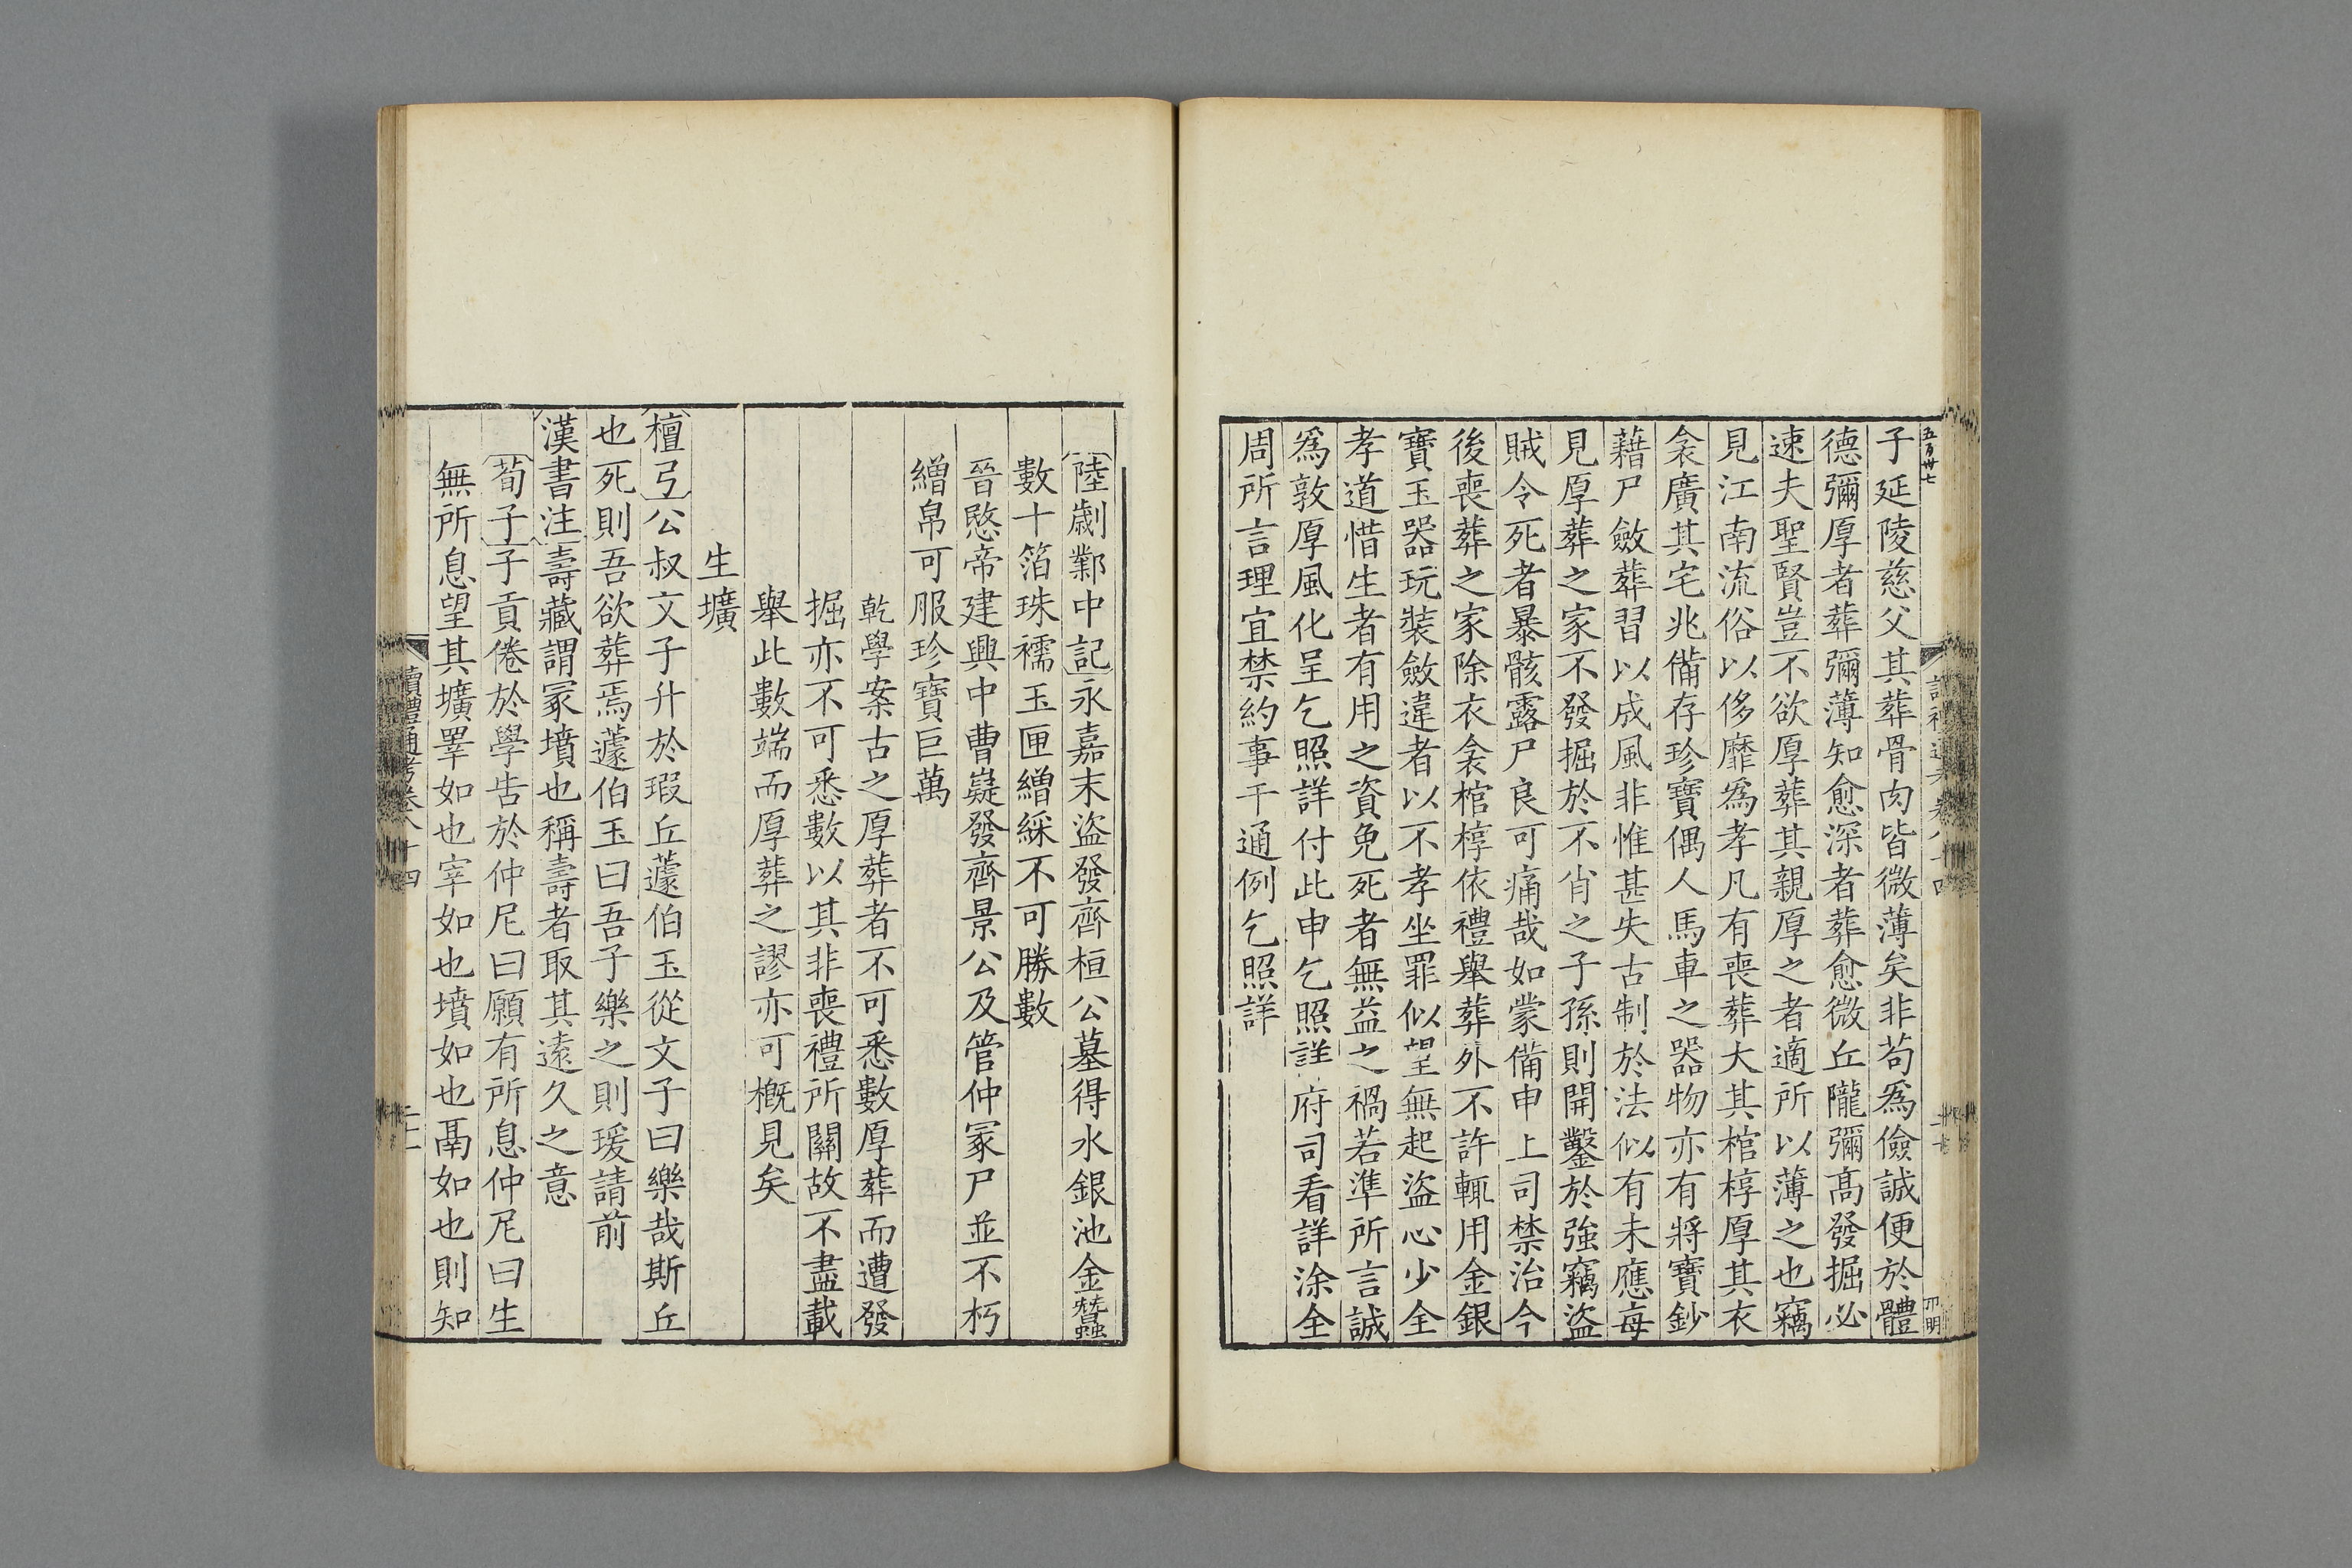 五百卅七
子延陵慈父其葬骨肉皆微薄矣非苟爲儉誠便於體
德彌厚者葬彌薄知愈深者葬愈微丘隴彌高發掘必
速夫聖賢豈不欲厚葬其親厚之者適所以薄之也竊
見江南流俗以侈靡爲孝凡有喪葬大其棺椁厚其衣
衾廣其宅兆備存珍寶偶人馬車之器物亦有將寶鈔
藉尸斂葬習以成風非惟甚失古制於法似有未應每
見厚葬之家不發掘於不肖之子孫則開鑿於強竊盜
賊令死者暴骸露尸良可痛哉如蒙備申上司禁治今
後喪葬之家除衣衾棺椁依禮舉葬外不許輒用金銀
寶玉器玩裝斂違者以不孝坐罪似望無起盜心少全
孝道惜生者有用之資免死者無益之禍若準所言誠
爲敦厚風化呈乞照詳付此申乞照詳府司看詳涂全
周所言理宜禁約事干通例乞照詳
陸劌鄴中記永嘉末盜發齊桓公墓得水銀池金蠶
數十箔珠襦玉匣繒綵不可勝數
晉愍帝建興中曹嶷發齊景公及管仲冢尸並不朽
繒帛可服珍寶巨萬
乾學案古之厚葬者不可悉數厚葬而遭發
掘亦不可悉數以其非喪禮所關故不盡載
舉此數端而厚葬之謬亦可概見矣
生壙
檀弓公叔文子升於瑕丘蘧伯玉從文子曰樂哉斯丘
也死則吾欲葬焉蘧伯玉曰吾子樂之則瑗請前
漢書注壽藏謂冢墳也稱壽者取其遠久之意
荀子子貢倦於學告於仲尼曰願有所息仲尼曰生
無所息望其壙睪如也宰如也墳如也鬲如也則知
讀禮通考卷八十四